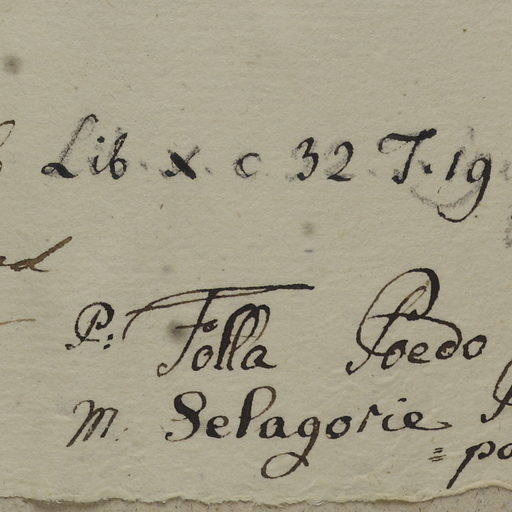 Lib. X. c 32 T. 19
P: Folla Poedo
M. Selagorie
= po